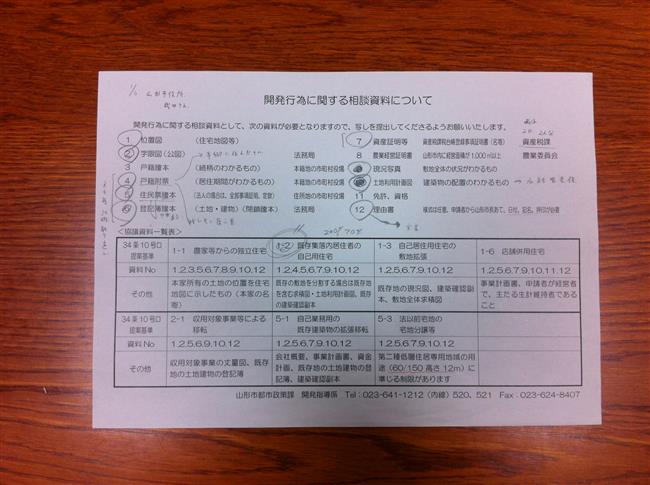 開発行為に関する相談資料について
開発行為に関する相談資料として、次の資料が必要となりますので、写しを提出してくださるようお願いいたします。
1 位置図 (住宅地図等) 7 資産証明等 資産税課税台帳登録事項証明書(名寄) 資産税課
2 字限図(公図) 法務局 8 農業経営証明書 山形市内に経営面積が1,000㎡以上 農業委員会
3 戸籍謄本 (続柄のわかるもの) 本籍地の市町村役場 現況写真 敷地全体の状況がわかるもの
4 戸籍附票 (居住期間がわかるもの) 本籍地の市町村役場 土地利用計画図 建築物の配置のわかるもの
5 住民票謄本 (法人の場合は、全部事項証明、定款) 住所地の市町村役場 11 免許、資格
登記簿謄本 (土地・建物)(閉鎖謄本) 法務局 12 理由書 様式は任意、申請者から山形市長あて、日付、記名、押印が必要
<協議資料一覧表> 200㎡
34条10号ロ提案基準 1-1 農家等からの独立住宅 1-2 既存集落内居住者の自己用住宅 1-3 自己居住用住宅の敷地拡張 1-6 店舗併用住宅
資料No 1.2.3.5.6.7.8.9.10.12 1.2.4.5.6.7.9.10.12 1.2.5.6.7.9.10.12 1.2.5.6.7.9.10.11.12
その他 本家所有の土地の位置を住宅地図に示したもの(本家の名寄) 既存の敷地を分割する場合は既存地を含む求積図・土地利用計画図、既存の建築確認副本 既存地の現況図、建築確認副本、敷地全体求積図 事業計画書、申請者が経営者で、主たる生計維持者であること
34条10号ロ提案基準 2-1 収用対象事業等による移転 5-1 自己業務用の既存建築物の拡張移転 5-3 法以前宅地の宅地分譲等
資料No 1.2.5.6.7.9.10.12 1.2.5.6.7.9.10.12 1.2.5.6.7.9.10.12
その他 収用対象事業の丈量図、既存地の土地建物の登記簿 会社概要、事業計画書、資金計画、既存地の土地建物の登記簿、建築確認副本 第二種低層住居専用地域の用途(60/150 高さ12m)に準じる制限があります
山形市都市政策課 開発指導係 Tel:023-641-1212(内線)520、521 Fax:023-624-8407